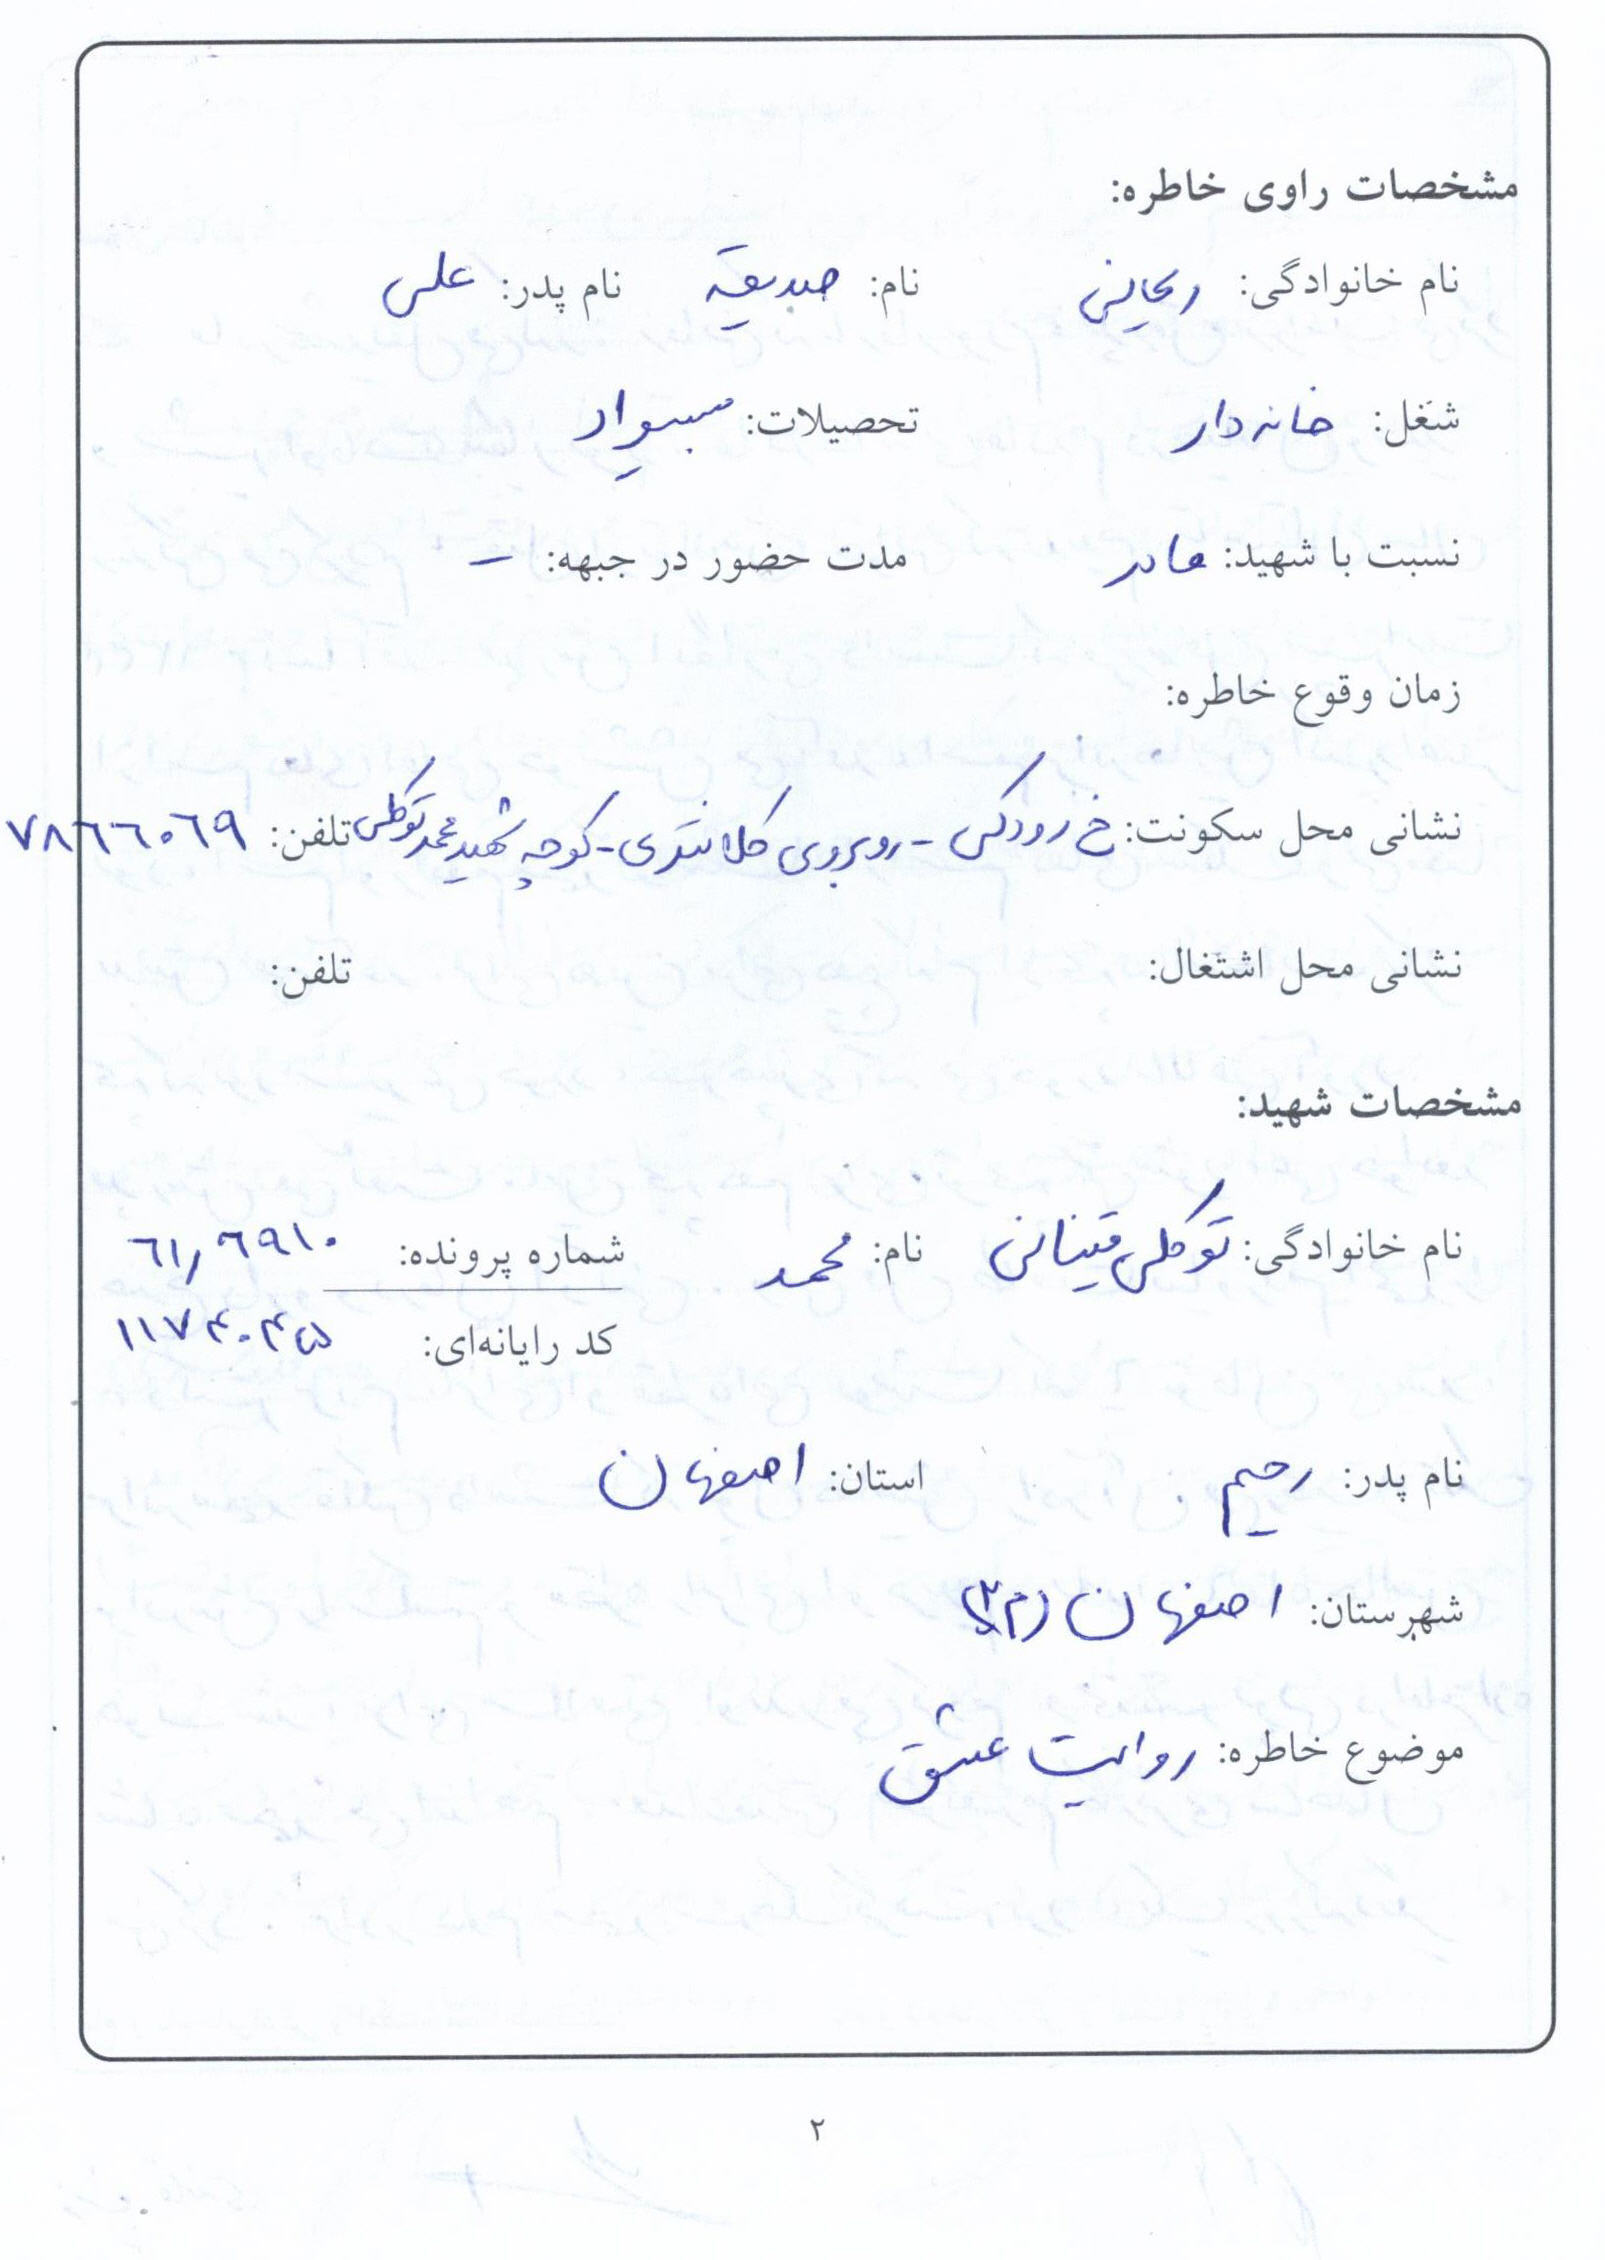 مشخصات راوی خاطره:
نام خانوادگی: ریحانی نام: صدیقه نام پدر: علی
شغل: خانه‌دار تحصیلات: بیسواد
نسبت با شهید: مادر مدت حضور در جبهه: –
زمان وقوع خاطره:
نشانی محل سکونت: خ رودکی - روبروی کلانتری - کوچه شهید محمد توکلی تلفن: ۷۸۶۶۰۶۹
نشانی محل اشتغال: تلفن:
مشخصات شهید:
نام خانوادگی: توکلی قینانی نام: محمد شماره پرونده: ۶۱٫۶۹۱۰
کد رایانه‌ای: ۱۱۷۴۰۴۵
نام پدر: رحیم استان: اصفهان
شهرستان: اصفهان (م۳)
موضوع خاطره: روایت عشق
۲